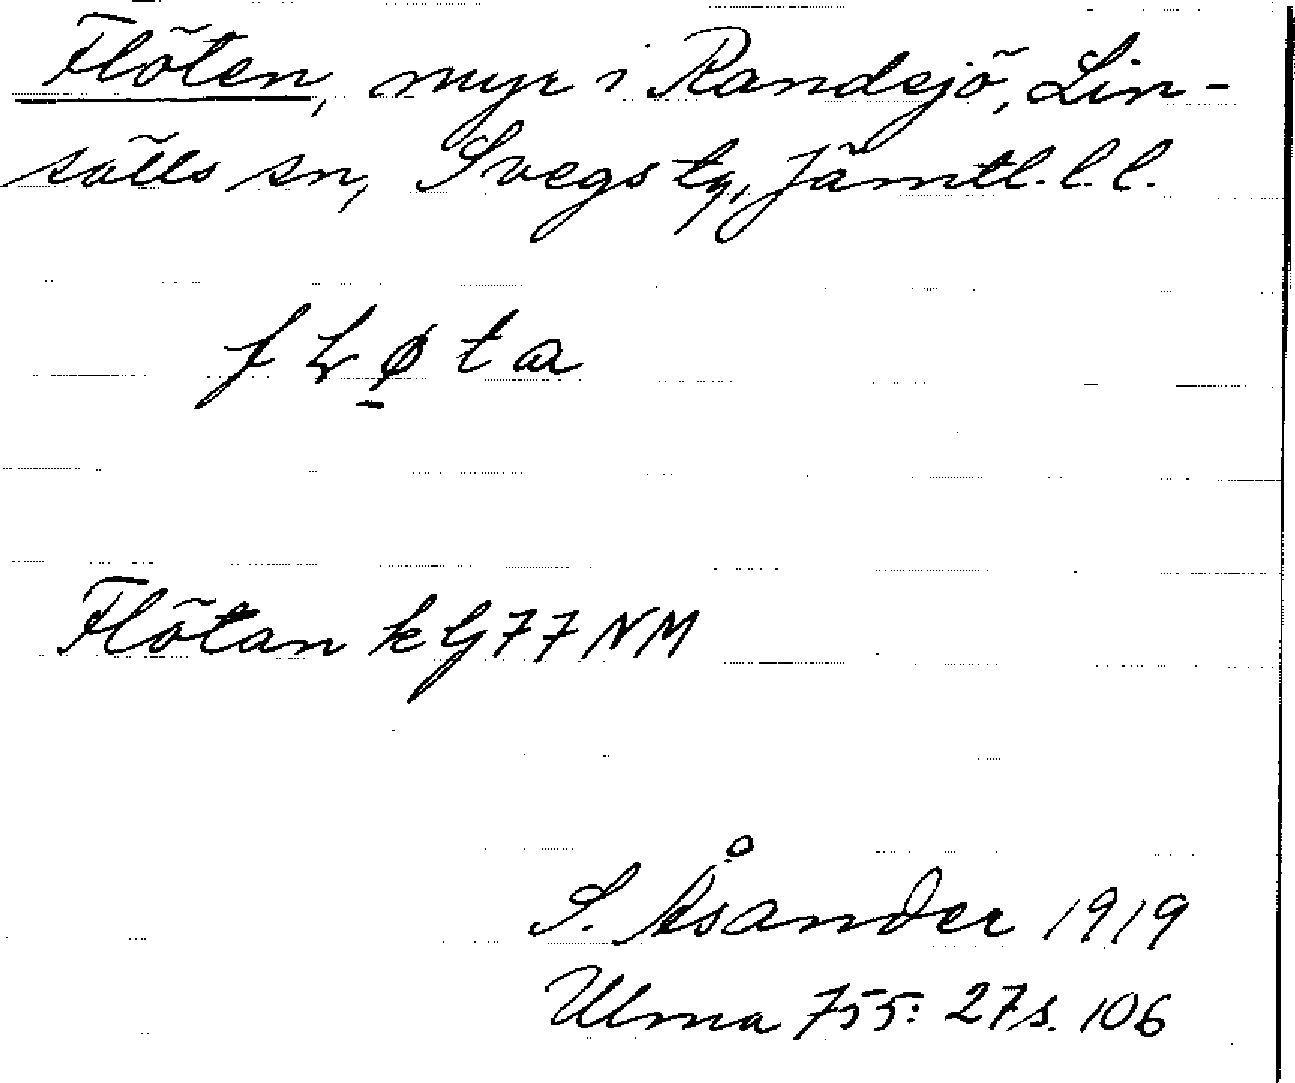 Flöten, myr i Randsjö, Lin-
sälls sn, Svegs tg, Jämtl. l. l.
fLø̠ta
Flötan k G 77 NM
S. Åsander 1919
Ulma 755: 27 s. 106